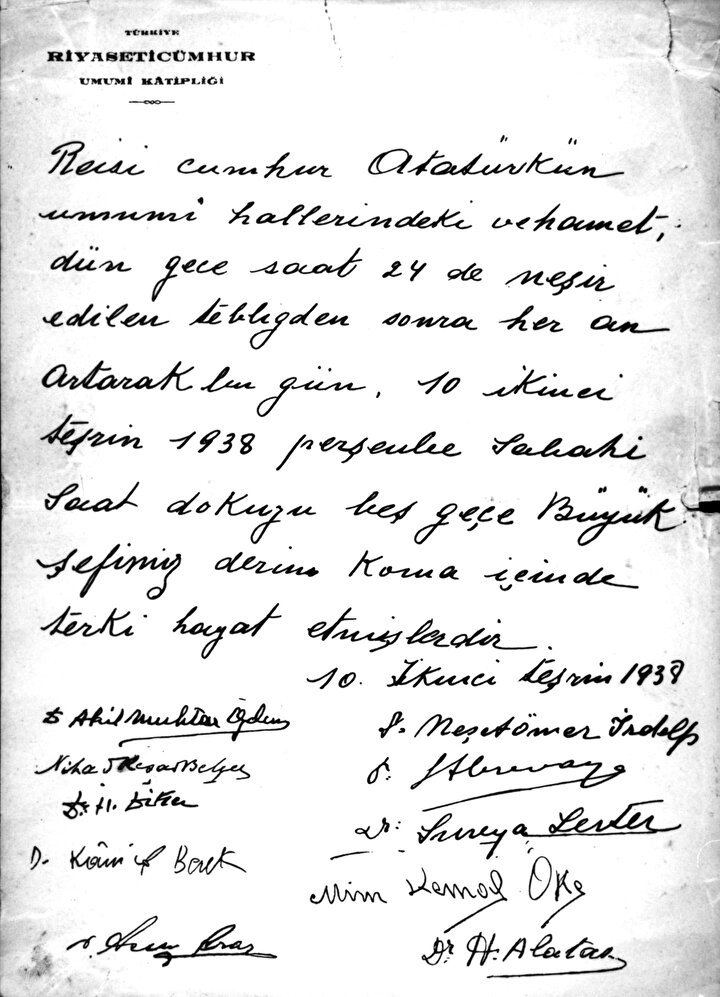 TÜRKİYE
RİYASETİCÜMHUR
UMUMİ KÂTİPLİĞİ
Reisi cumhur Atatürkün
umumi hallerindeki vehamet,
dün gece saat 24 de neşir
edilen tebligden sonra her an
artarak bu gün, 10 ikinci
teşrin 1938 perşenbe sabahi
saat dokuzu beş geçe Büyük
şefimiz derin koma içinde
terki hayat etmişlerdir.
10. İkinci teşrin 1938
Dr Akil Muhtar Özden
Dr. Neşetömer İrdelp
Nihad Reşad Belger
Dr. M.
Dr. Abrevaya
Dr: Sureya Serter
D. Kâmil Berk
Mim Kemal Öke
Dr. Aras
Dr H. Alatas